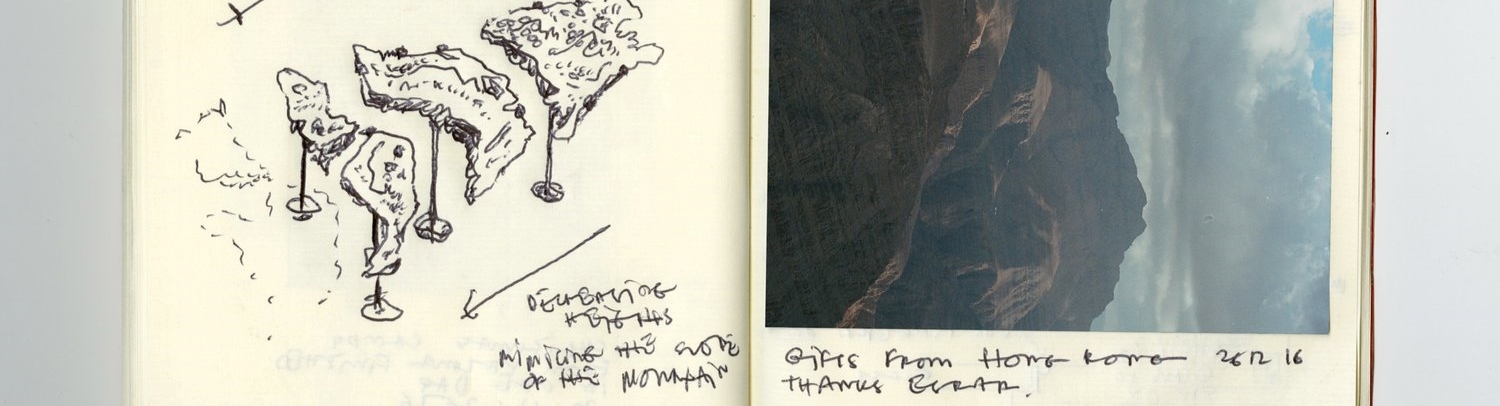 DECREASING
HEIGHTS
MIMICING THE SLOPE
OF THE MOUNTAIN
GIFTS FROM HONG KONG 26 12 16
THANKS